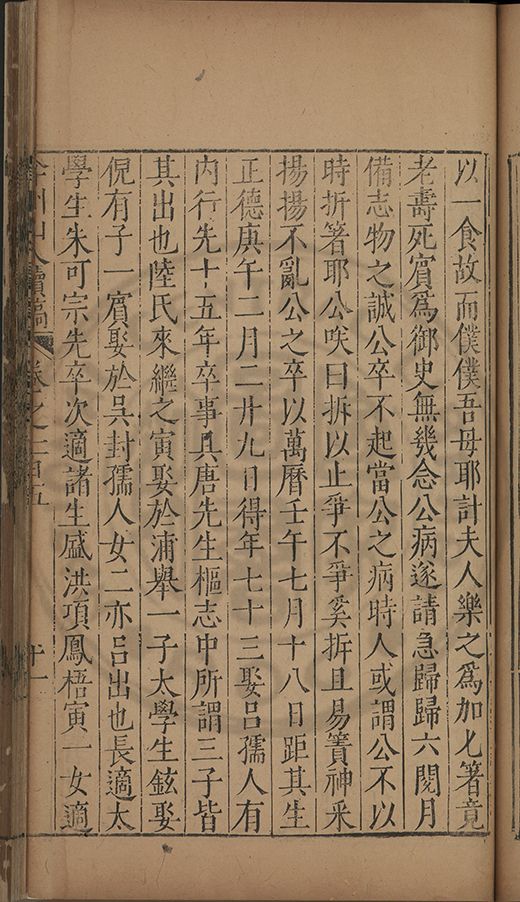 以一食故而僕僕吾母耶計夫人樂之爲加匕箸竟
老壽死賓爲御史無幾念公病遂請急歸歸六閱月
備志物之誠公卒不起當公之病時人或謂公不以
時折箸耶公咲曰拆以止爭不爭奚拆且易簀神采
揚揚不亂公之卒以萬曆壬午七月十八日距其生
正德庚午二月二廿九日得年七十三娶呂孺人有
内行先十五年卒事具唐先生樞志中所謂三子皆
其出也陸氏來繼之寅娶於浦舉一子太學生鉉娶
倪有子一賓娶於吳封孺人女二亦呂出也長適太
學生朱可宗先卒次適諸生盛洪項鳳梧寅一女適
續稿 卷之一百五 十一